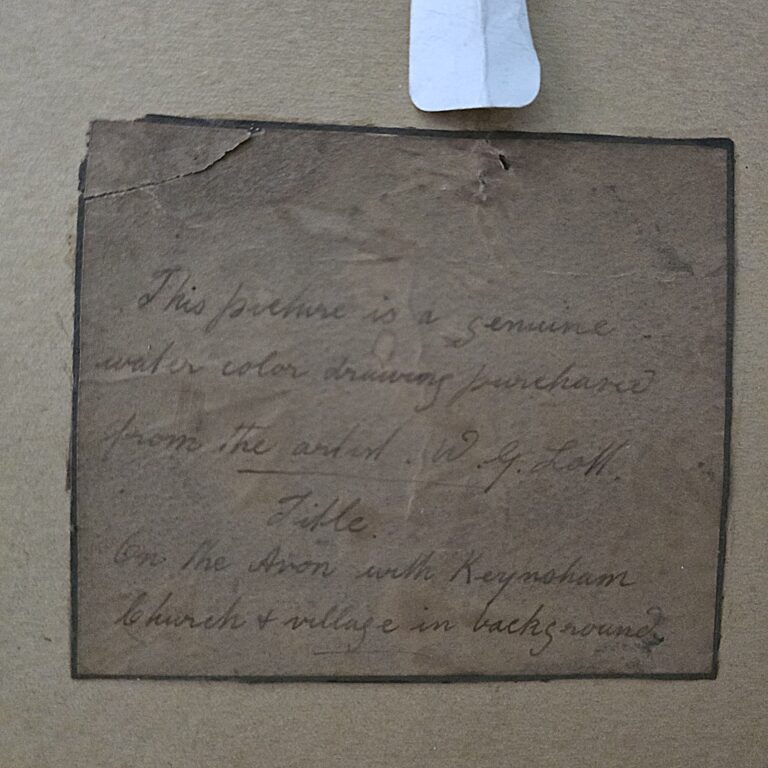 This picture is a genuine
water color drawing purchased
from the artist. W. G.
Title.
On the Avon with Keynsham
Church & village in background